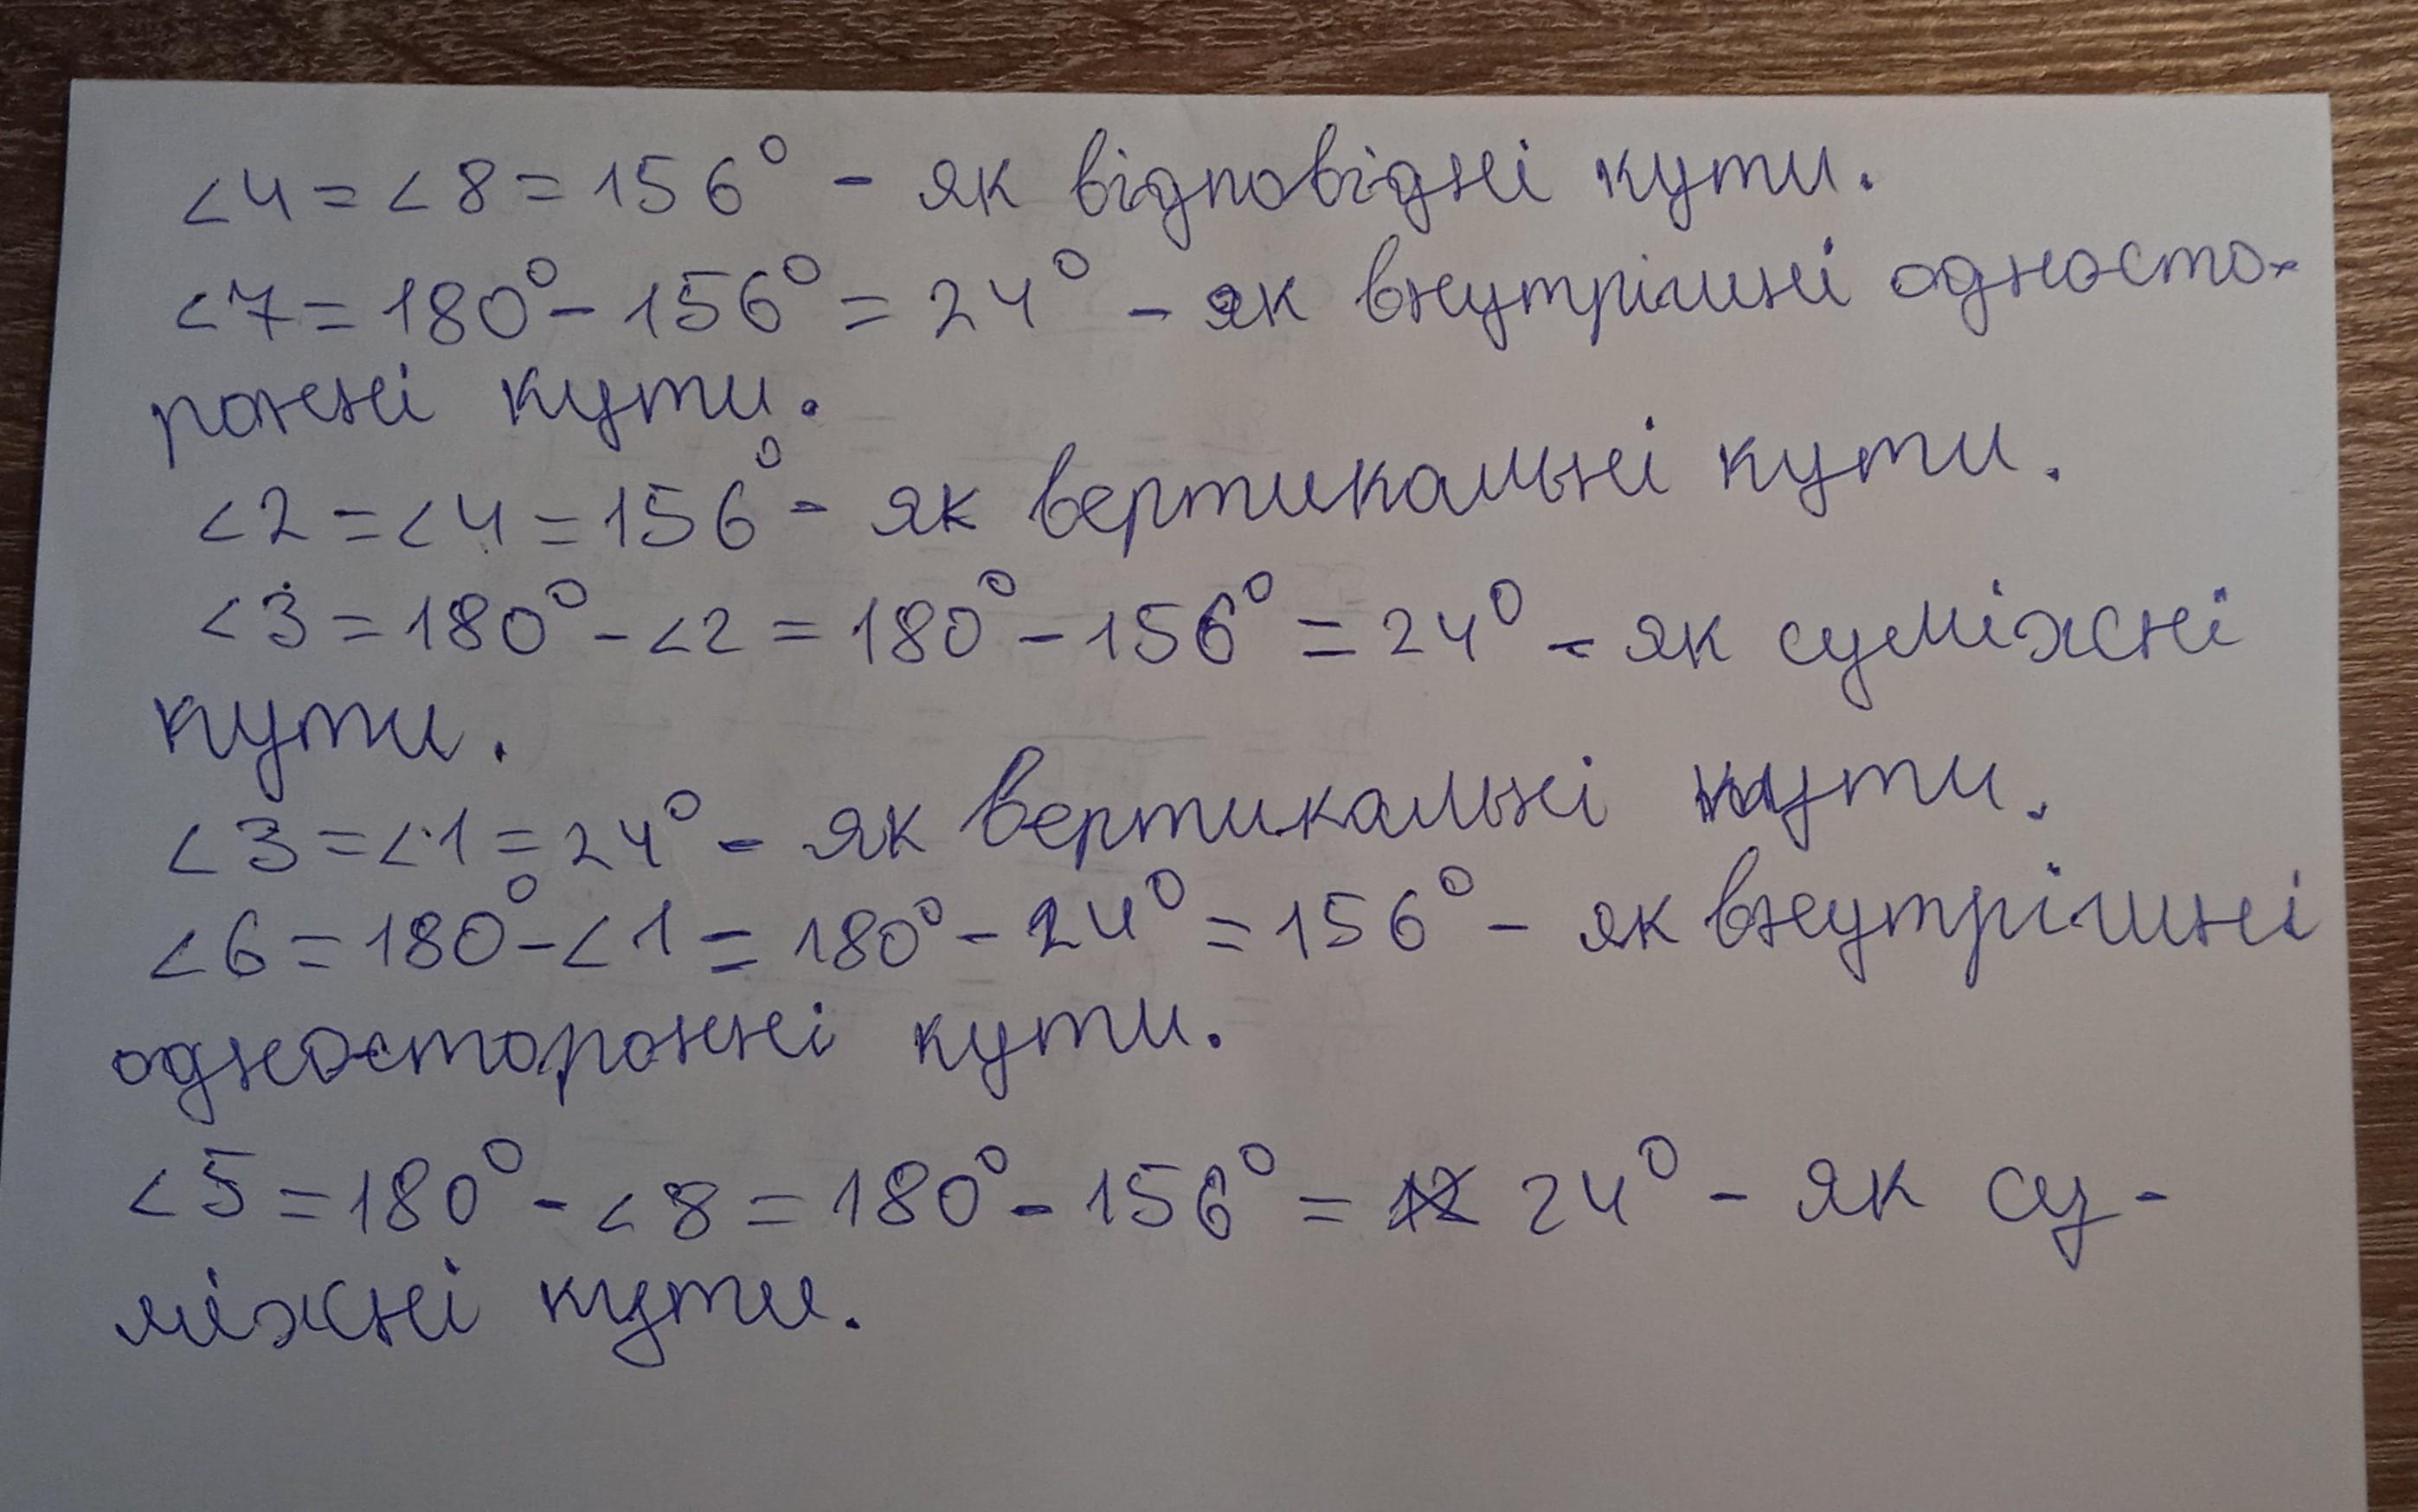 ∠4 = ∠8 = 156° - як відповідні кути.
∠7 = 180° - 156° = 24° - як внутрішні односто-
ронні кути.
∠2 = ∠4 = 156° - як вертикальні кути.
∠3 = 180° - ∠2 = 180° - 156° = 24° - як суміжні
кути.
∠3 = ∠1 = 24° - як вертикальні кути.
∠6 = 180° - ∠1 = 180° - 24° = 156° - як внутрішні
односторонні кути.
∠5 = 180° - ∠8 = 180° - 156° = 24° - як су-
міжні кути.